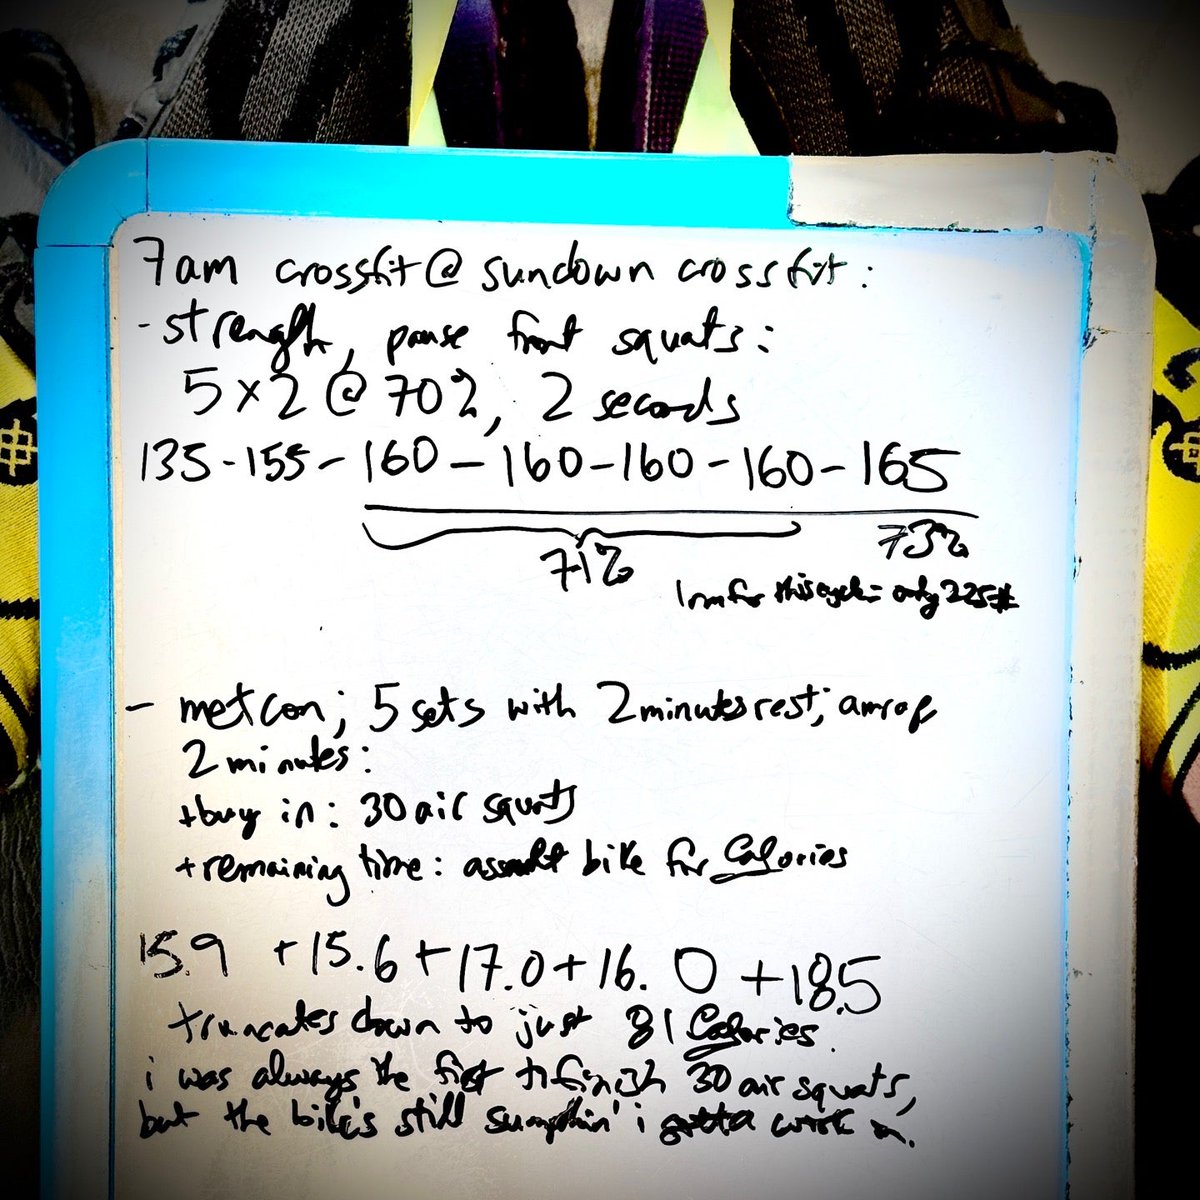 7am crossfit @ sundown crossfit:
- strength, pause front squats:
5x2 @ 70%, 2 seconds
135 - 155 - 160 - 160 - 160 - 160 - 165
71% 73%
1rm for this cycle = only 225#
- metcon; 5 sets with 2 minutes rest; amrap
2 minutes:
+buy in: 30 air squats
+remaining time: assault bike for Calories
15.9 + 15.6 + 17.0 + 16.0 + 18.5
truncates down to just 81 Calories.
i was always the first to finish 30 air squats,
but the bike's still sumphin' i gotta work on.